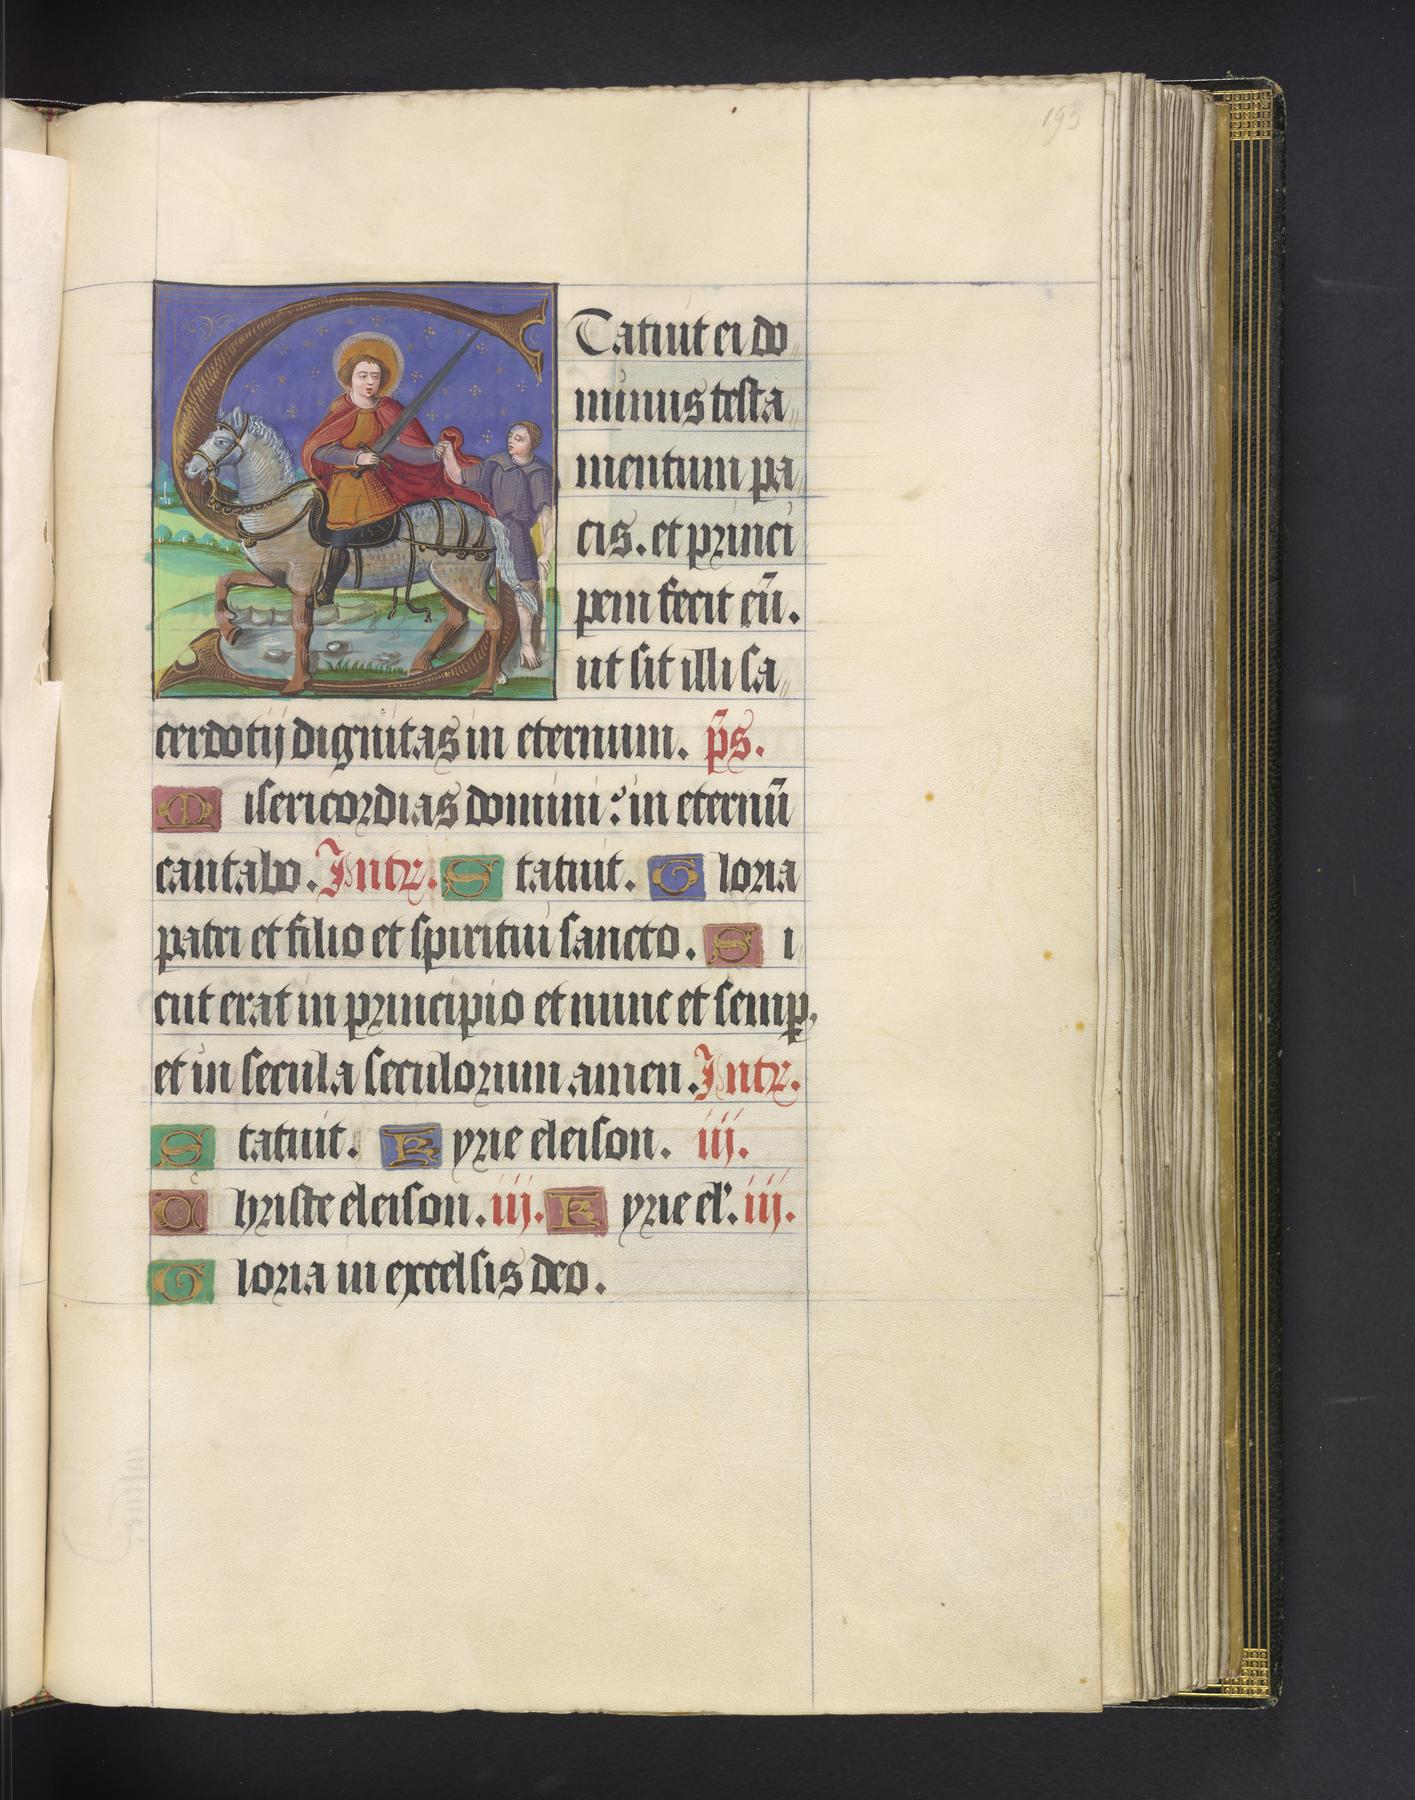 195
STatuit ei do
minus testa
mentum pa
cis. et princi
pem fecit eū.
ut sit illi sa
cerdotij dignitas in eternum. p̄s.
Misericordias domini: in eternū
cantabo. Intr. Statuit. Gloria
patri et filio et spiritui sancto. Si
cut erat in principio et nunc et semp,
et in secula seculorum amen. Intr.
Statuit. Kyrie eleison. iij.
c
Christe eleison. iij. Kyrie el'. iij.
Gloria in excelsis deo.